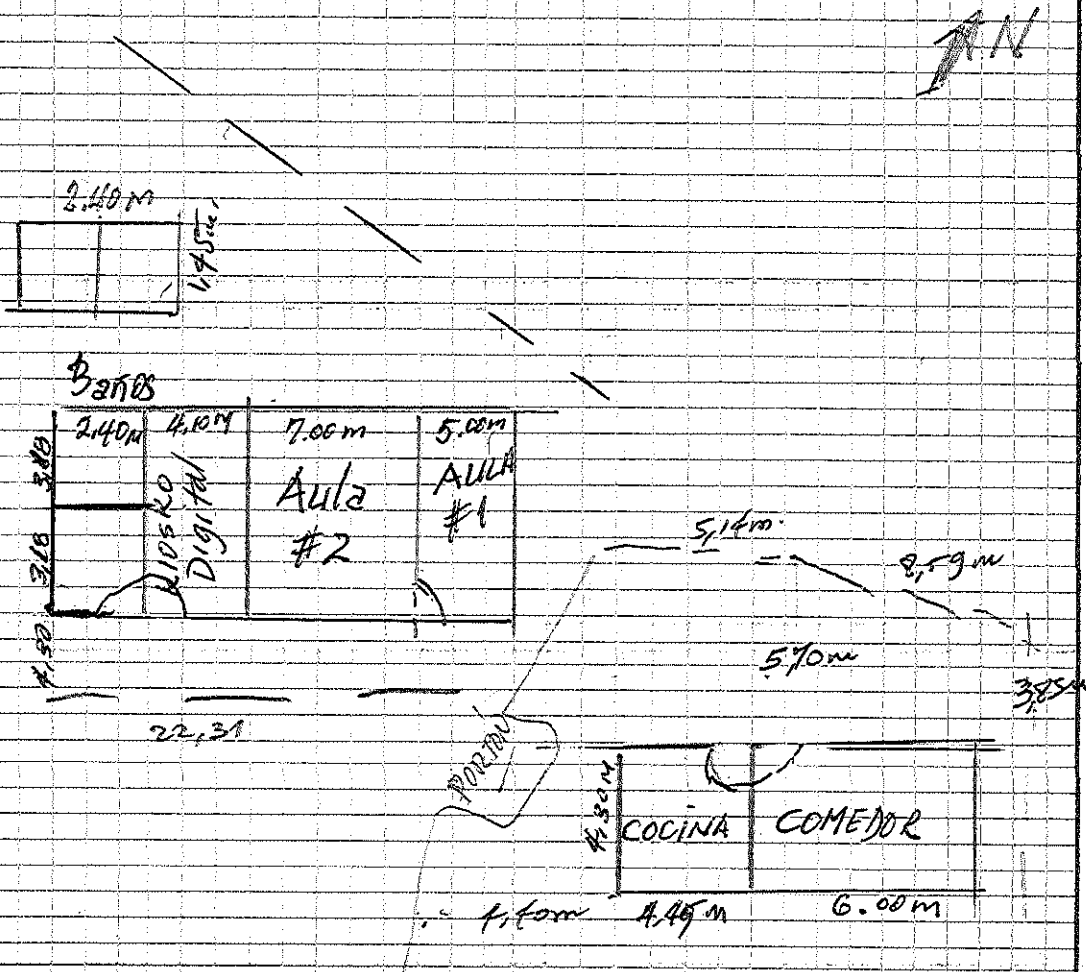 N
2.40m
1,45m.
Baños
2,40m 4,10m 7.00m 5.00m
Kiosko
Digital
Aula
#2
AULA
#1
5,14m.
5.70m
22,31
PORTÓN
4,30M
COCINA
COMEDOR
4.45m
6.00m